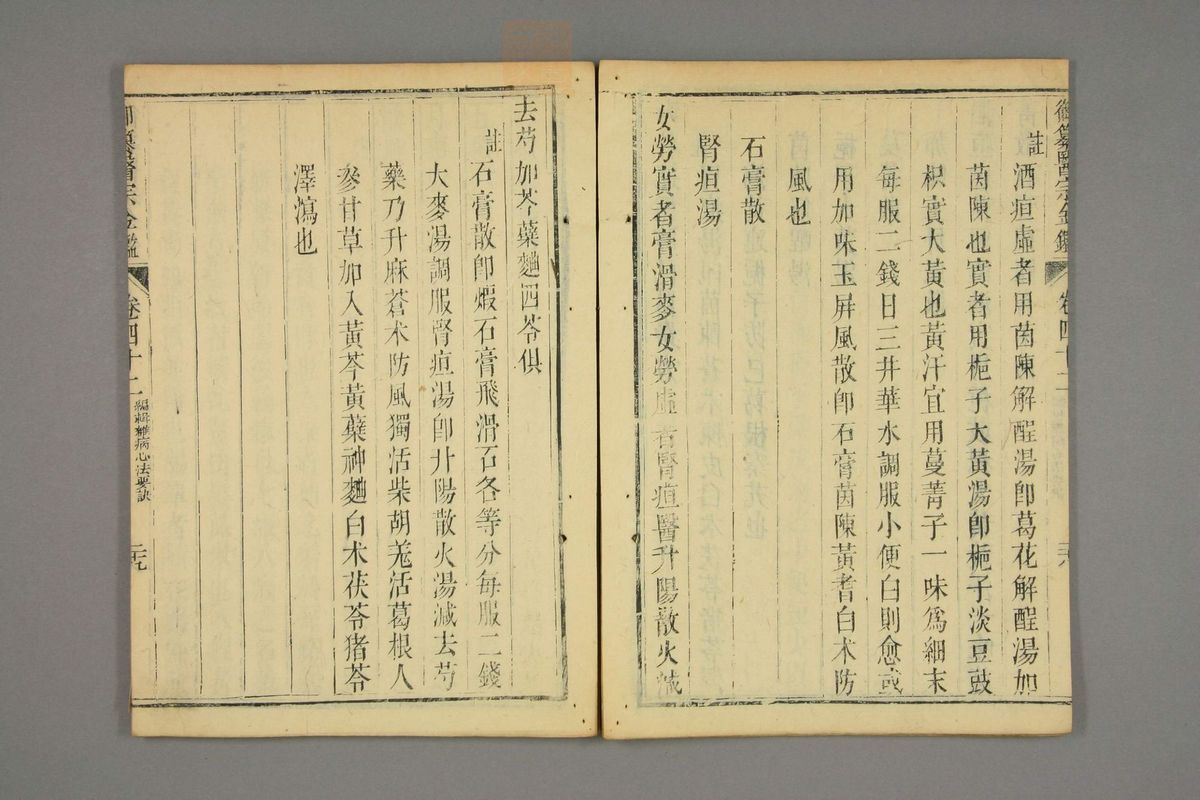 御纂醫宗金鑑 卷四十二 三六
註酒疸虛者用茵陳解酲湯卽葛花解酲湯加
茵陳也實者用梔子大黃湯卽梔子淡豆豉
枳實大黃也黃汗宜用蔓菁子一味爲細末
每服二錢日三井華水調服小便白則愈或
用加味玉屏風散卽石膏茵陳黃耆白朮防
風也
石膏散
腎疸湯
女勞實者膏滑麥女勞虛者腎疸醫升陽散火減
去芍加芩蘗麯四苓俱
註石膏散卽煅石膏飛滑石各等分每服二錢
大麥湯調服腎疸湯卽升陽散火湯減去芍
藥乃升麻蒼朮防風獨活柴胡羗活葛根人
參甘草加入黃芩黃蘗神麯白朮茯苓猪苓
澤瀉也
御纂醫宗金鑑 卷四十二 編輯雜病心法要訣 三九